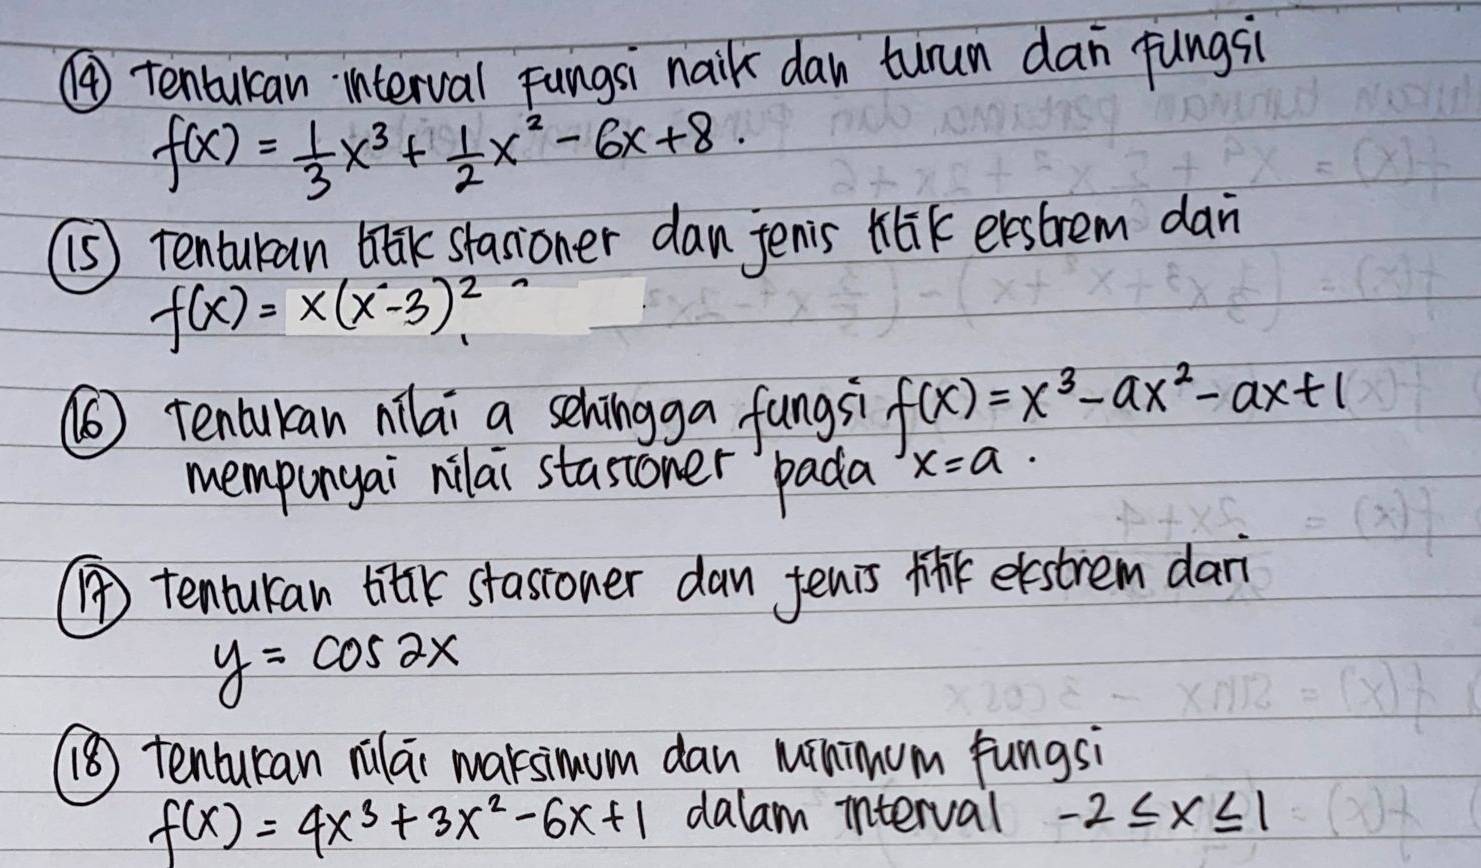 14 Tentukan interval fungsi naik dan turun dari fungsi
f(x) = 1/3 x³ + 1/2 x² - 6x + 8.
15 Tentukan titik stasioner dan jenis titik ekstrem dari
f(x) = x(x-3)²
16 Tentukan nilai a sehingga fungsi f(x) = x³ - ax² - ax + 1
mempunyai nilai stasioner pada x = a.
17 Tentukan titik stasioner dan jenis titik ekstrem dari
y = cos 2x
18 Tentukan nilai maksimum dan minimum fungsi
f(x) = 4x³ + 3x² - 6x + 1 dalam interval -2 ≤ x ≤ 1